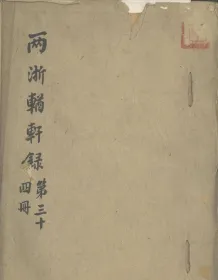 两浙輶軒録
第三十
四冊